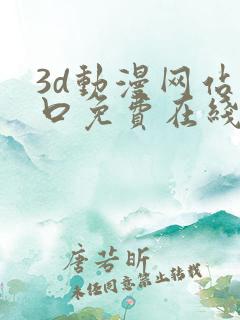 3d動漫网佔
口免費在綫
唐芳昕
未经同意禁止转载